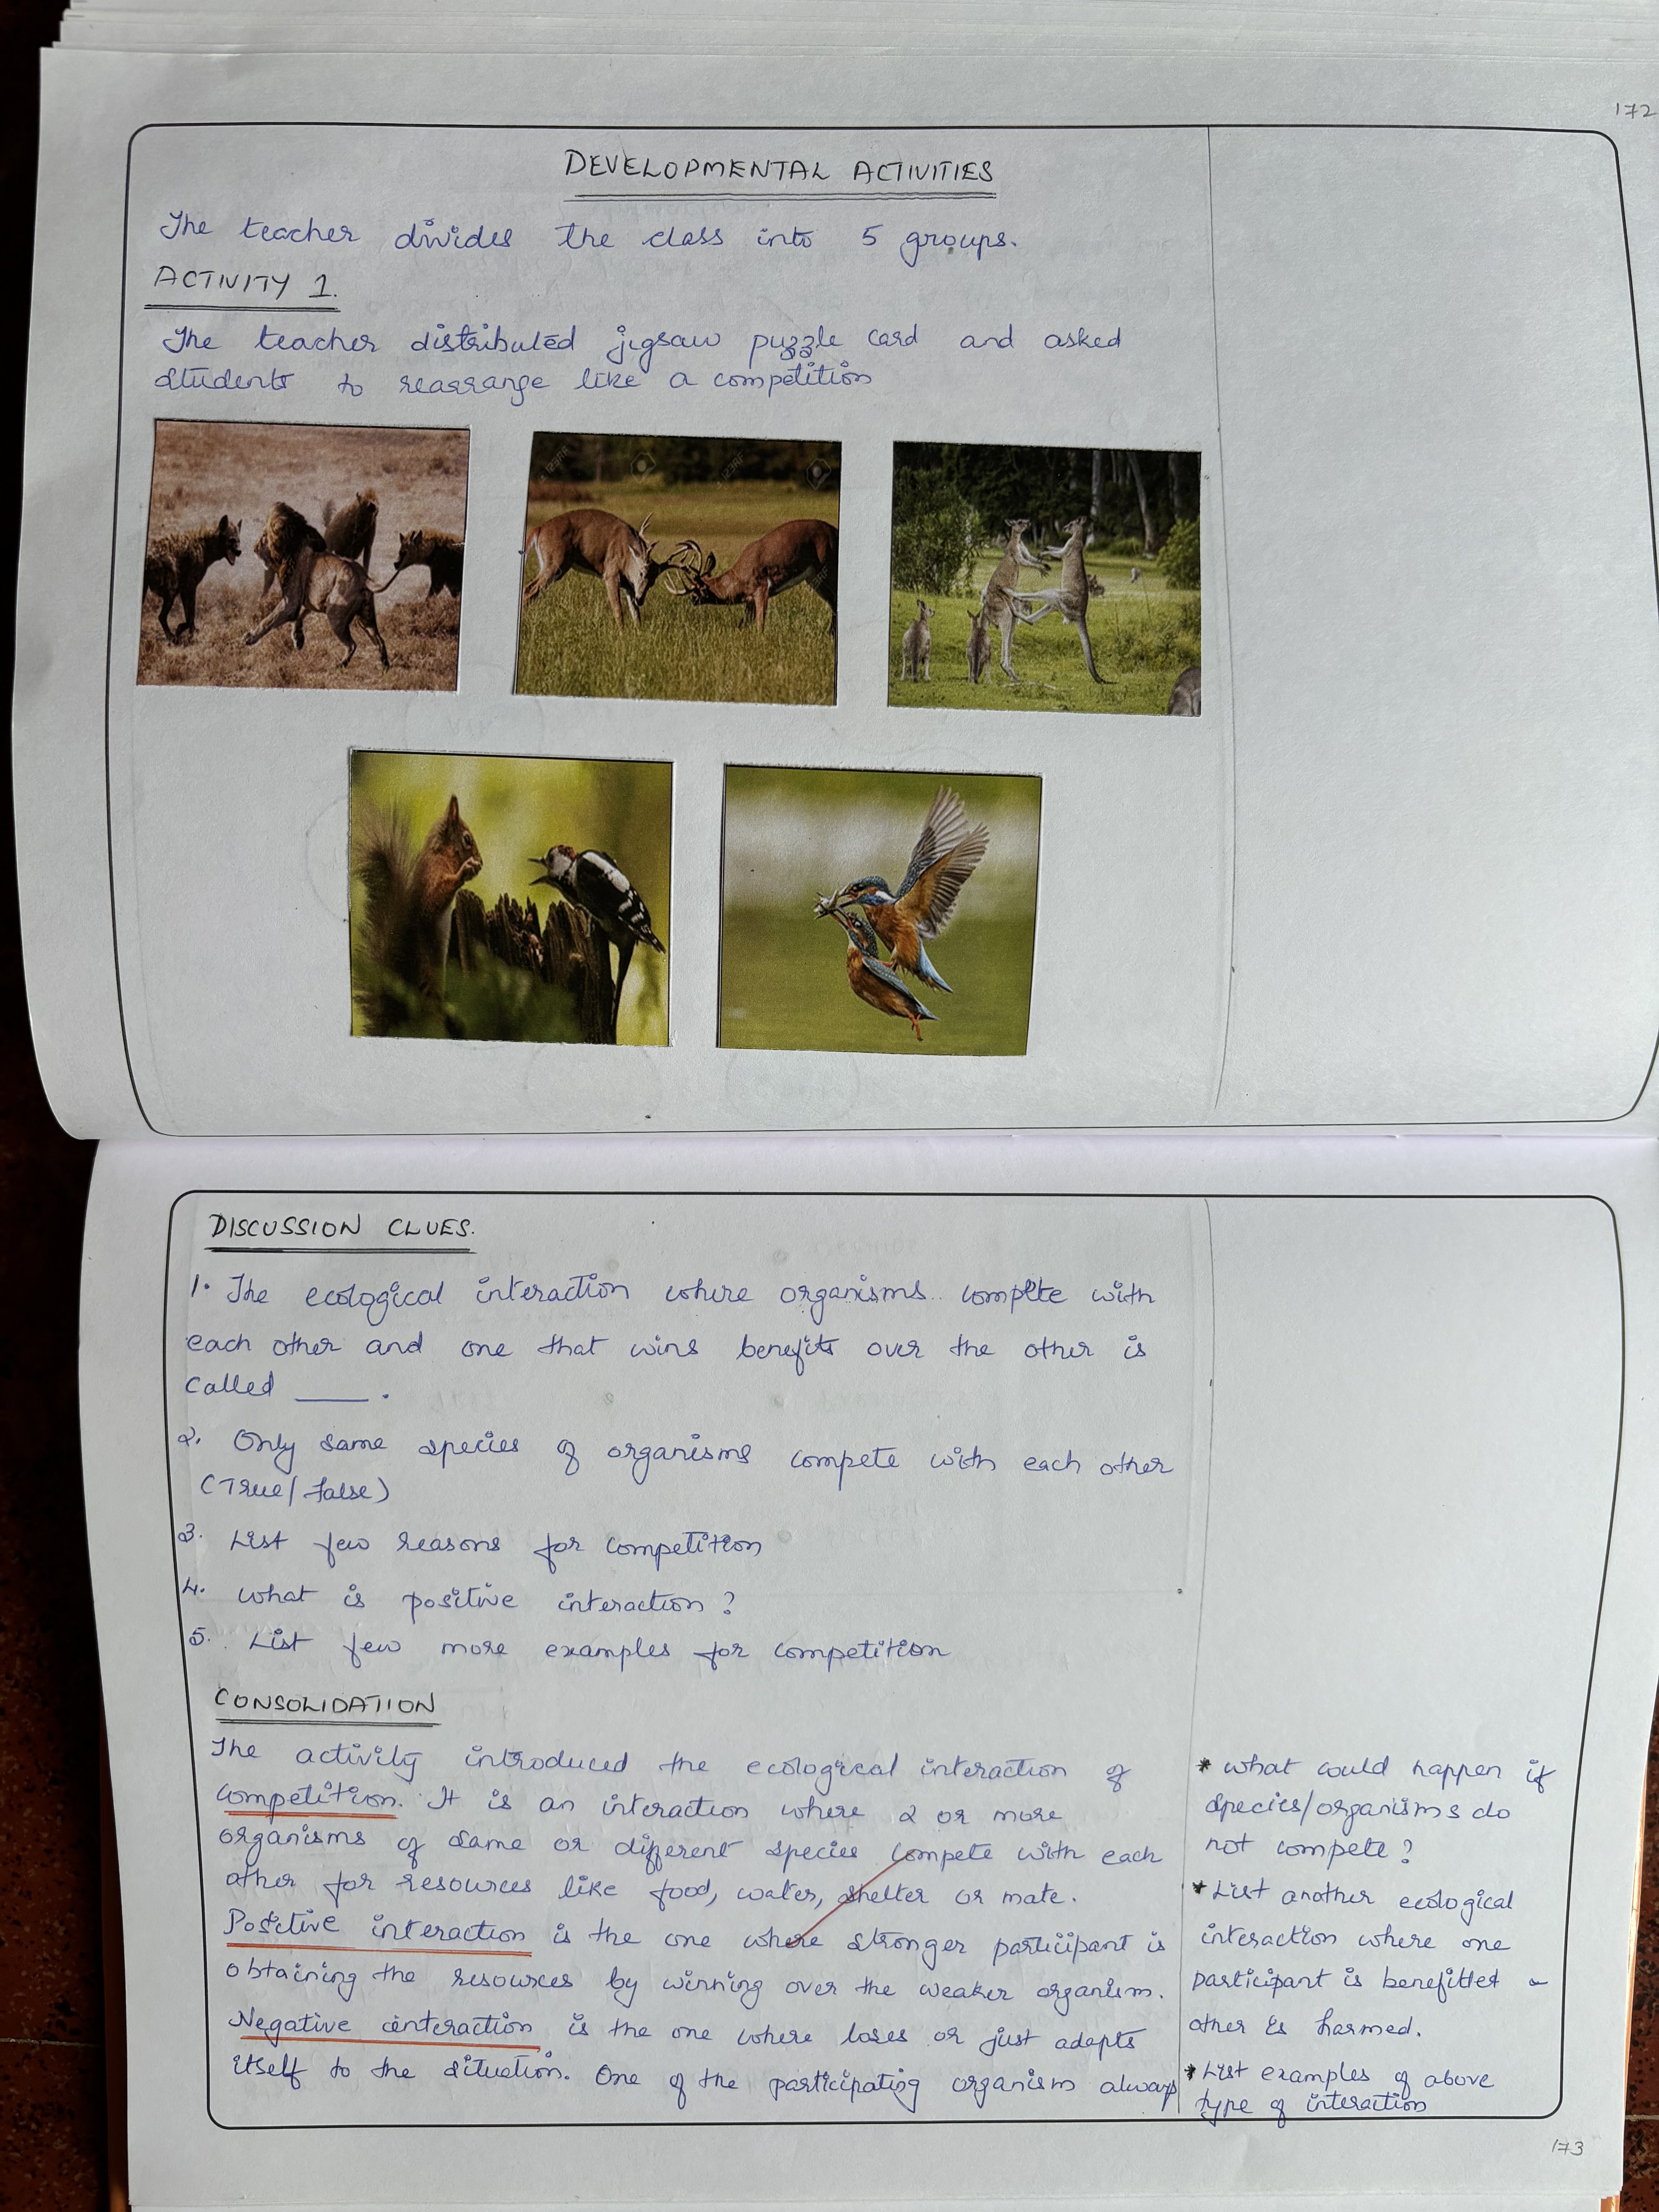 172
DEVELOPMENTAL ACTIVITIES
The teacher divides the class into 5 groups.
ACTIVITY 1.
The teacher distributed jigsaw puzzle card and asked
students to rearrange like a competition
123RF
123RF
DISCUSSION CLUES.
1. The ecological interaction where organisms complte with
each other and one that wins benefits over the other is
called ____.
2. Only same species of organisms compete with each other
(True/False)
3. List few reasons for competition
4. What is positive interaction?
5. List few more examples for competition
CONSOLIDATION
The activity introduced the ecological interaction of
competition. It is an interaction where 2 or more
organisms of same or different species compete with each
other for resources like food, water, shelter or mate.
Positive interaction is the one where stronger participant is
obtaining the resources by winning over the weaker organism.
Negative interaction is the one where loses or just adapts
itself to the situation. One of the participating organism always
* What could happen if
species/organisms do
not compete?
* List another ecological
interaction where one
participant is benefitted
other is harmed.
* List examples of above
type of interaction
173